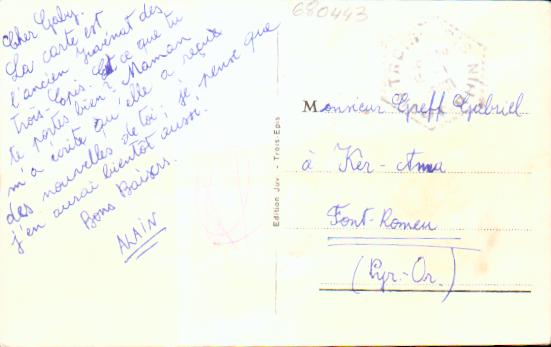 680443
Cher Gaby.
La carte est
l'ancien juvénat des
Trois-Epis. Est ce que tu
te portes bien? Maman
m'a écrite qu'elle a reçue
des nouvelles de toi; je pense que
j'en aurai bientôt aussi!
Bons Baisers.
ALAIN
Edition Juv. - Trois-Epis
Monsieur Greff Gabriel
à Kèr-Anna
Font-Romeu
(Pyr.-Or.)